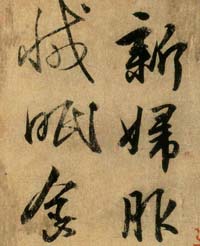 新婦服
減眠食